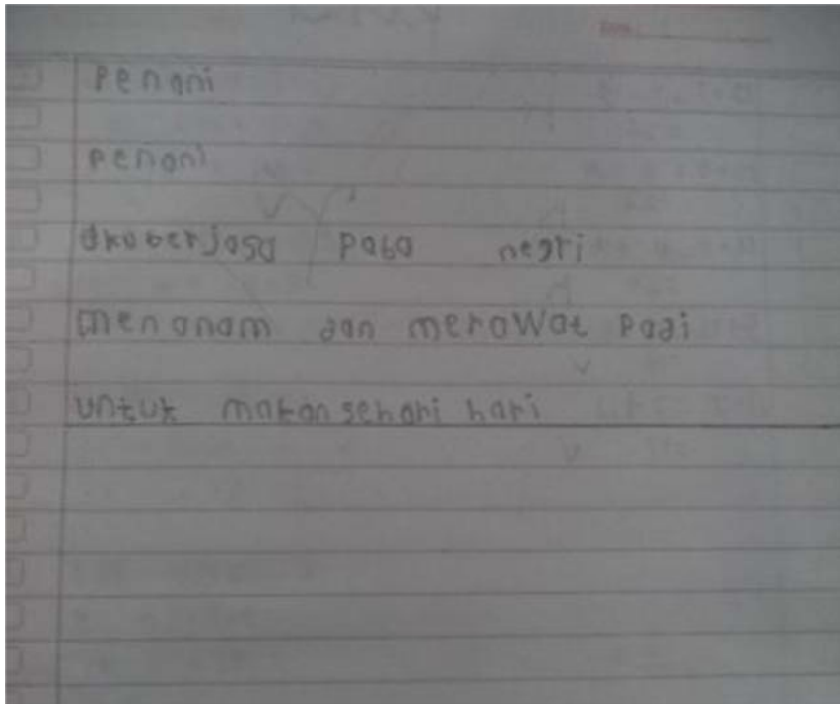 Penani
penani
dkaberjasa paba negri
menanam dan merawat padi
untuk makan sehari hari